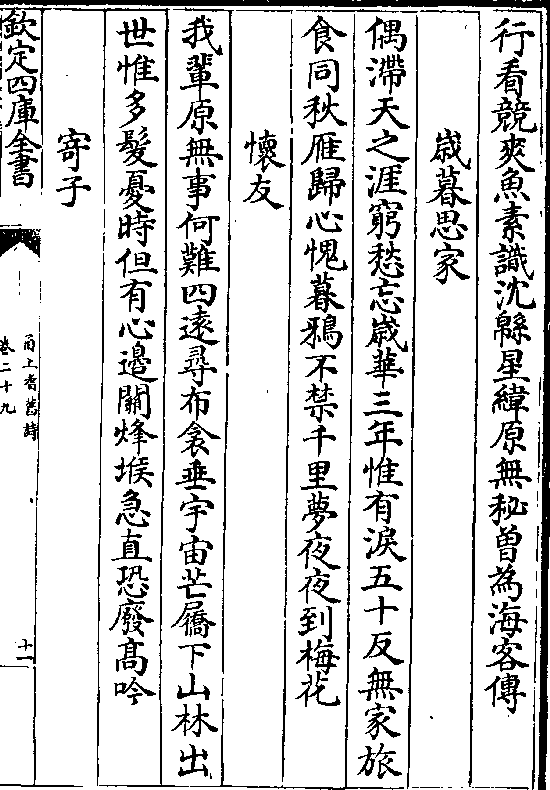 行看競爽魚素識沈緜星緯原無秘曾為海客傳
歲暮思家
偶滯天之涯窮愁忘歲華三年惟有淚五十反無家旅
食同秋雁歸心愧暮鴉不禁千里夢夜夜到梅花
懷友
我輩原無事何難四遠尋布衾垂宇宙芒屩下山林出
世惟多髮憂時但有心邉關烽堠急直恐廢髙吟
寄子
欽定四庫全書
甬上耆舊詩
卷二十九
十一